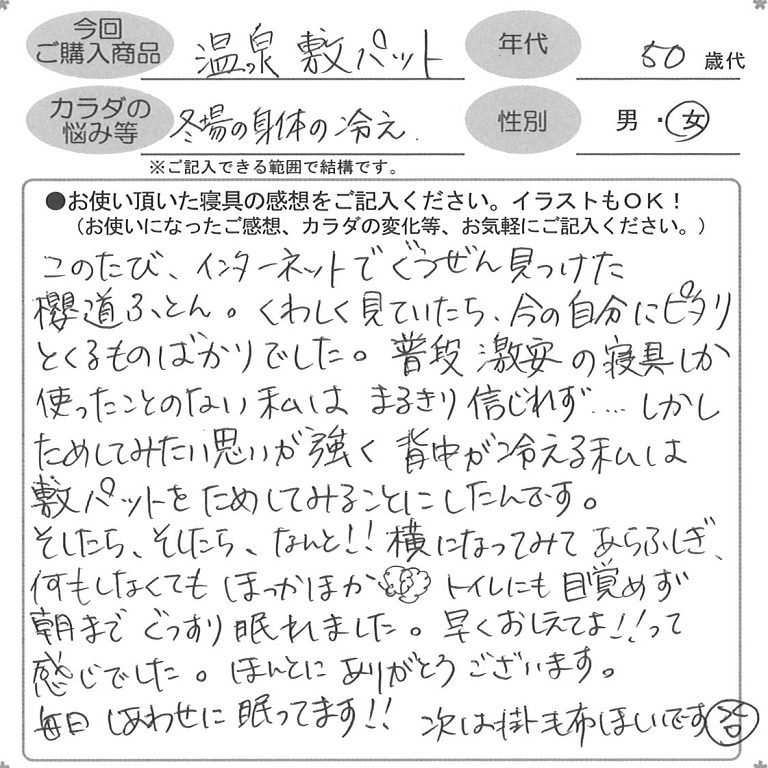 今回
ご購入商品
温泉敷パット
年代
50 歳代
カラダの
悩み等
冬場の身体の冷え.
性別
男・女
※ご記入できる範囲で結構です。
●お使い頂いた寝具の感想をご記入ください。イラストもOK!
(お使いになったご感想、カラダの変化等、お気軽にご記入ください。)
このたび、インターネットでぐうぜん見つけた
櫻道ふとん。くわしく見ていたら、今の自分にピタリ
とくるものばかりでした。普段激安の寝具しか
使ったことのない私はまるきり信じれず....しかし
ためしてみたい思いが強く背中が冷える私は
敷パットをためしてみることにしたんです。
そしたら、そしたら、なんと!!横になってみてあらふしぎ、
何もしなくてもほっかほかトイレにも目覚めず
朝までぐっすり眠れました。早くおしえてよ!!って
感じでした。ほんとにありがとうございます。
毎日しあわせに眠ってます!!次は掛毛布ほしいです